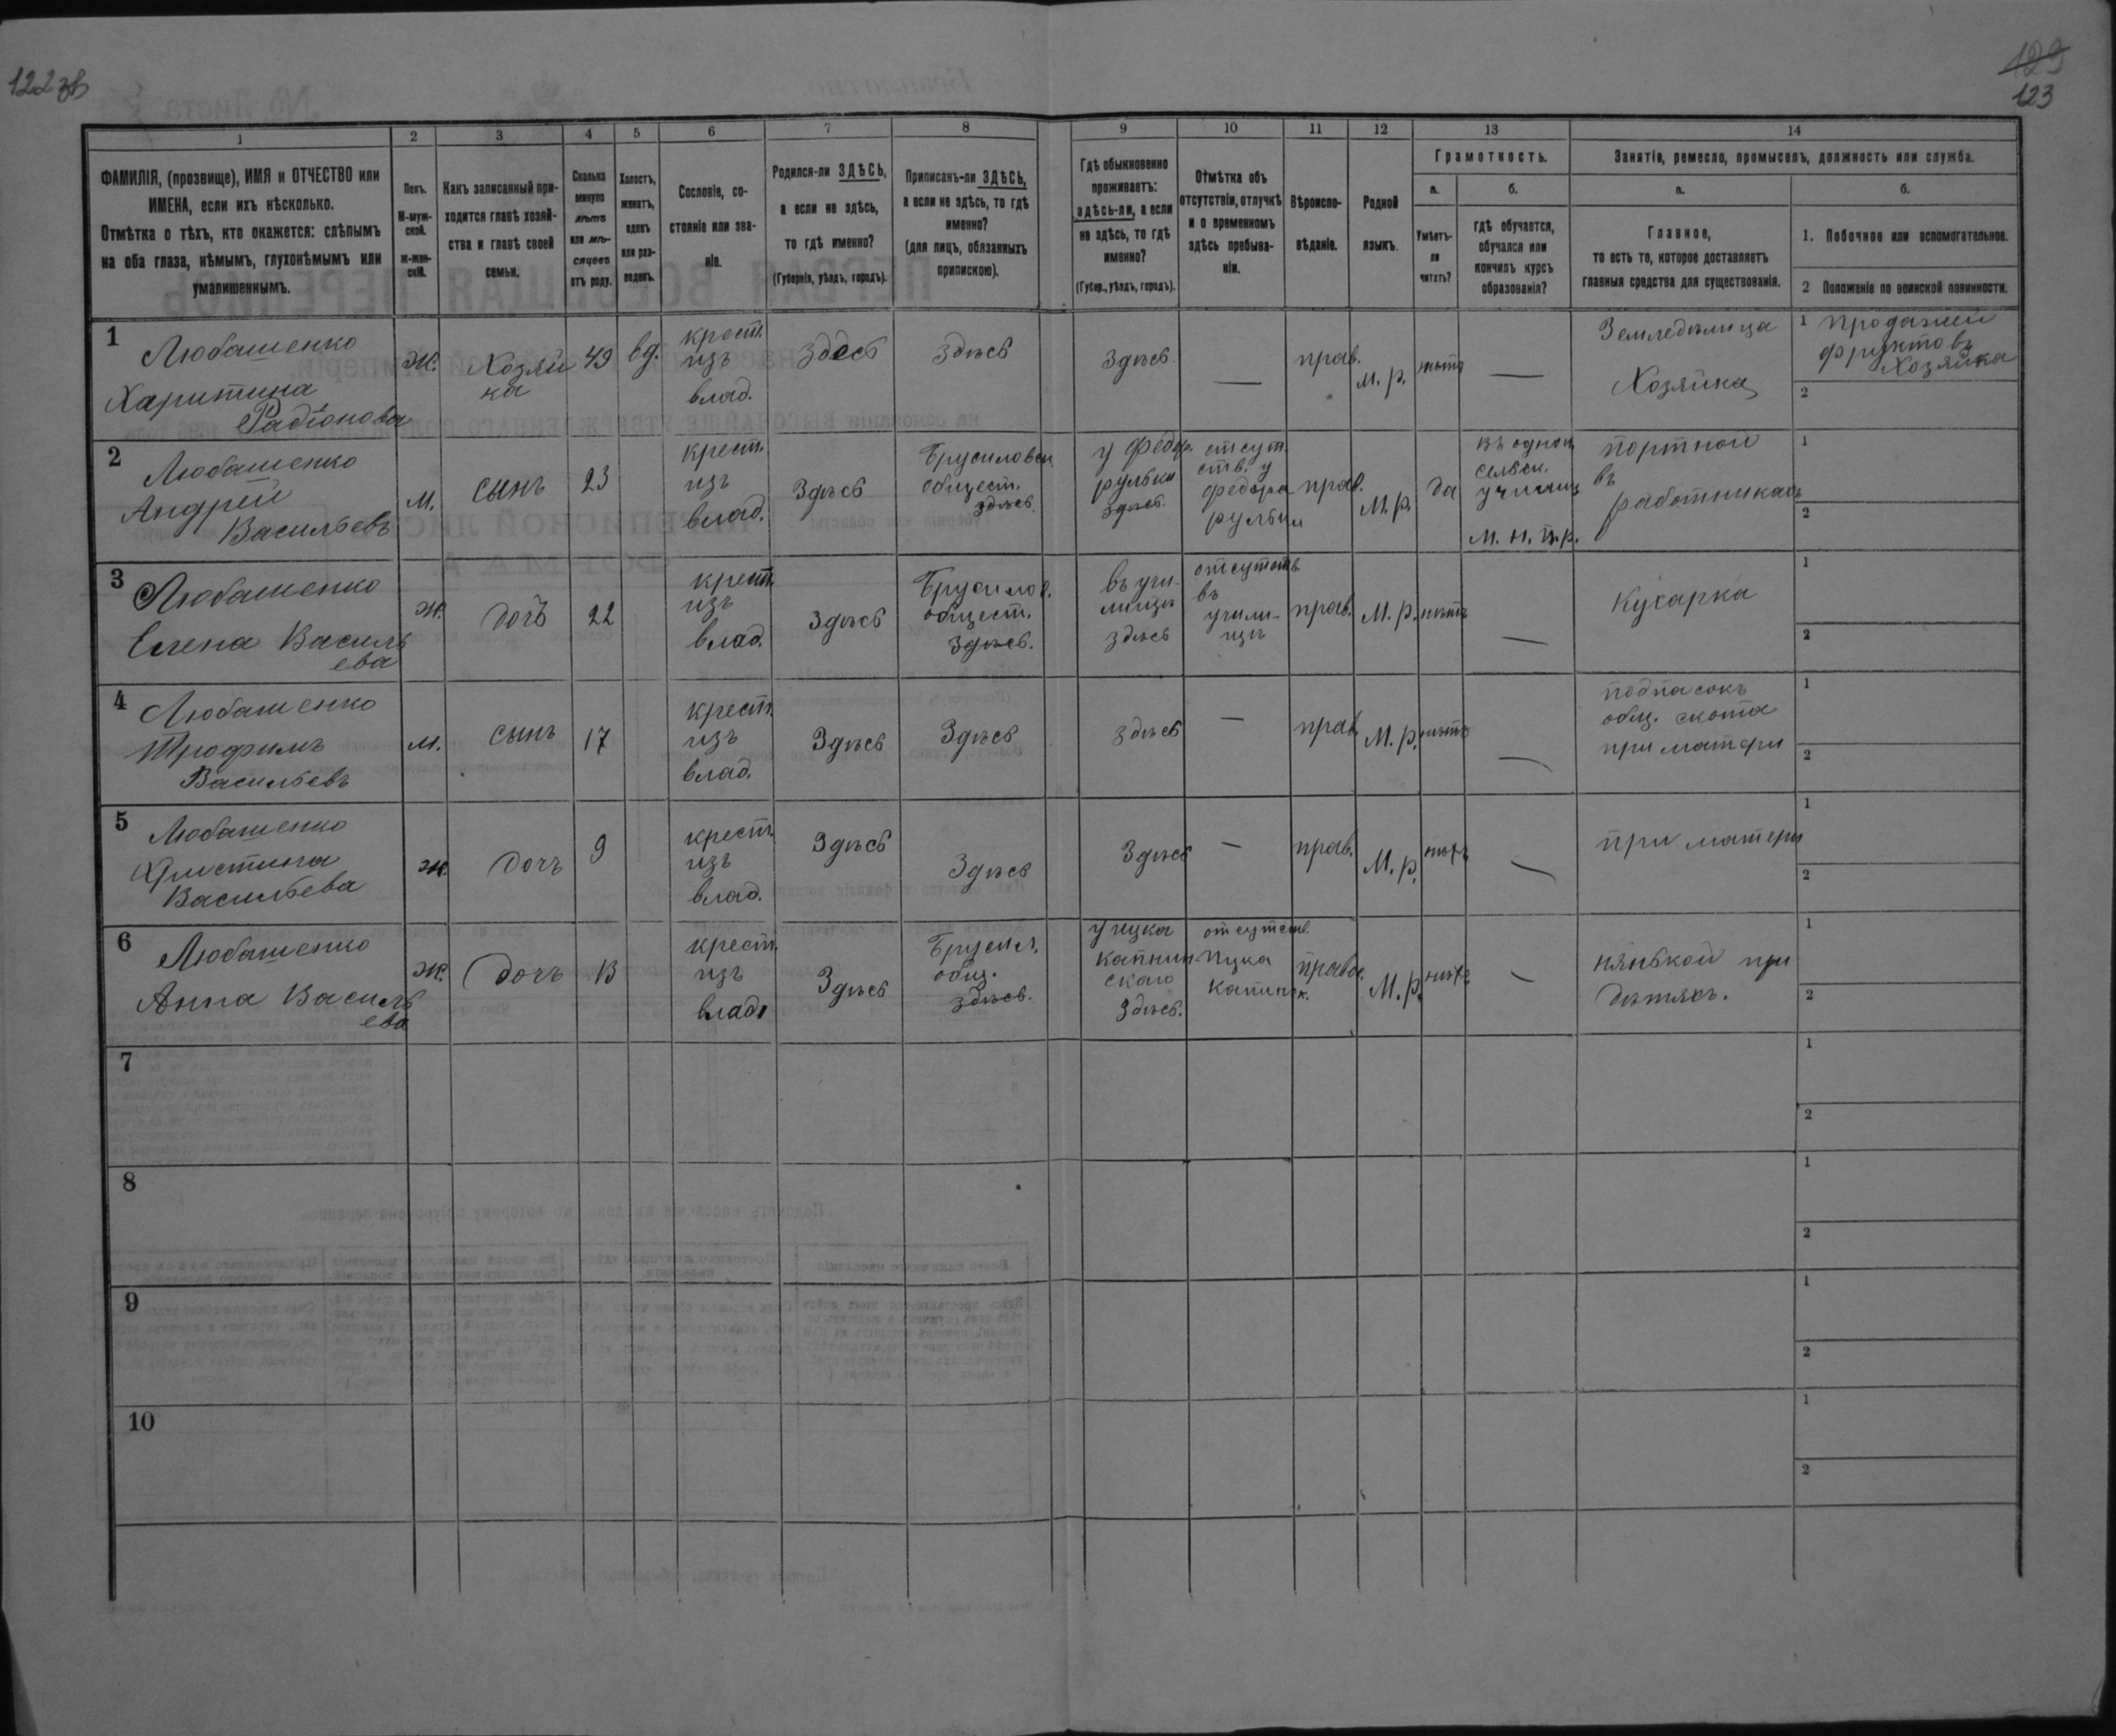 122 зв
129
123
1
2
3
4
5
6
7
8
9
10
11
12
13
14
ФАМИЛІЯ, (прозвище), ИМЯ и ОТЧЕСТВО или
ИМЕНА, если ихъ нѣсколько.
Отмѣтка о тѣхъ, кто окажется: слѣпымъ
на оба глаза, нѣмымъ, глухонѣмымъ или
умалишеннымъ.
Полъ.
М-муж-
ской.
Ж-жен-
скій.
Какъ записанный при-
ходится главѣ хозяй-
ства и главѣ своей
семьи.
Сколько
минуло
лѣтъ
или мѣ-
сяцевъ
отъ роду.
Холостъ,
женатъ,
вдовъ
или раз-
веденъ.
Сословіе, со-
стояніе или зва-
ніе.
Родился-ли ЗДѢСЬ,
а если не здѣсь,
то гдѣ именно?
(Губернія, уѣздъ, городъ).
Приписанъ-ли ЗДѢСЬ,
а если не здѣсь, то гдѣ
именно?
(для лицъ, обязанныхъ
припискою).
Гдѣ обыкновенно
проживаетъ:
здѣсь-ли, а если
не здѣсь, то гдѣ
именно?
(Губер., уѣздъ, городъ).
Отмѣтка объ
отсутствіи, отлучкѣ
и о временномъ
здѣсь пребыва-
ніи.
Вѣроиспо-
вѣданіе.
Родной
языкъ.
Грамотность.
а.
б.
Умѣетъ-
ли
читать?
гдѣ обучается,
обучался или
кончилъ курсъ
образованія?
Занятіе, ремесло, промыселъ, должность или служба.
а.
б.
Главное,
то есть то, которое доставляетъ
главныя средства для существованія.
1. Побочное или вспомогательное.
2 Положеніе по воинской повинности.
1
Любашенко
Харитина
Радіонова
Ж.
Хозяй
ка
49
вд.
крест.
изъ
влад.
здесь
здѣсь
здѣсь
—
прав.
М. р.
нѣтъ
—
Земледѣлица
Хозяйка
1 продажей
фруктовъ
Хозяйка
2
2
Любашенко
Андрей
Васильевъ
М.
сынъ
23
крест.
изъ
влад.
Здѣсь
Брусиловск.
общест.
здѣсь.
у Федор.
рульки
здѣсь.
отсут.
ств. у
федора
рульки
прав.
М. р.
да
въ однок.
сельск.
училищ
М. Н. Пр.
портной
въ
работникахъ
1
2
3
Любашенко
Елена Василь
ева
Ж.
дочь
22
крест.
изъ
влад.
Здѣсь
Брусилов.
общест.
здѣсь.
въ учи-
лищѣ
здѣсь
отсутств.
въ
учили-
щѣ
прав.
М. р.
нѣтъ
—
Кухарка
1
2
4
Любашенко
Трофимъ
Васильевъ
М.
сынъ
17
крест.
изъ
влад.
Здѣсь
Здѣсь
здѣсь
—
прав.
М. р.
нѣтъ
—
подпасокъ
общ. скота
при матери
1
2
5
Любашенко
Христина
Васильева
Ж.
дочь
9
крест.
изъ
влад.
Здѣсь
Здѣсь
Здѣсь
—
прав.
М. р.
нѣтъ
—
при матери
1
2
6
Любашенко
Анна Василь
ева
Ж.
дочь
13
крест.
изъ
влад.
Здѣсь
Брусил.
общ.
здѣсь.
у Ицка
скаго
Здѣсь.
отсутств.
Ицка
правос.
М. р.
нѣтъ
—
нянькой при
дѣтяхъ.
1
2
7
1
2
8
1
2
9
1
2
10
1
2